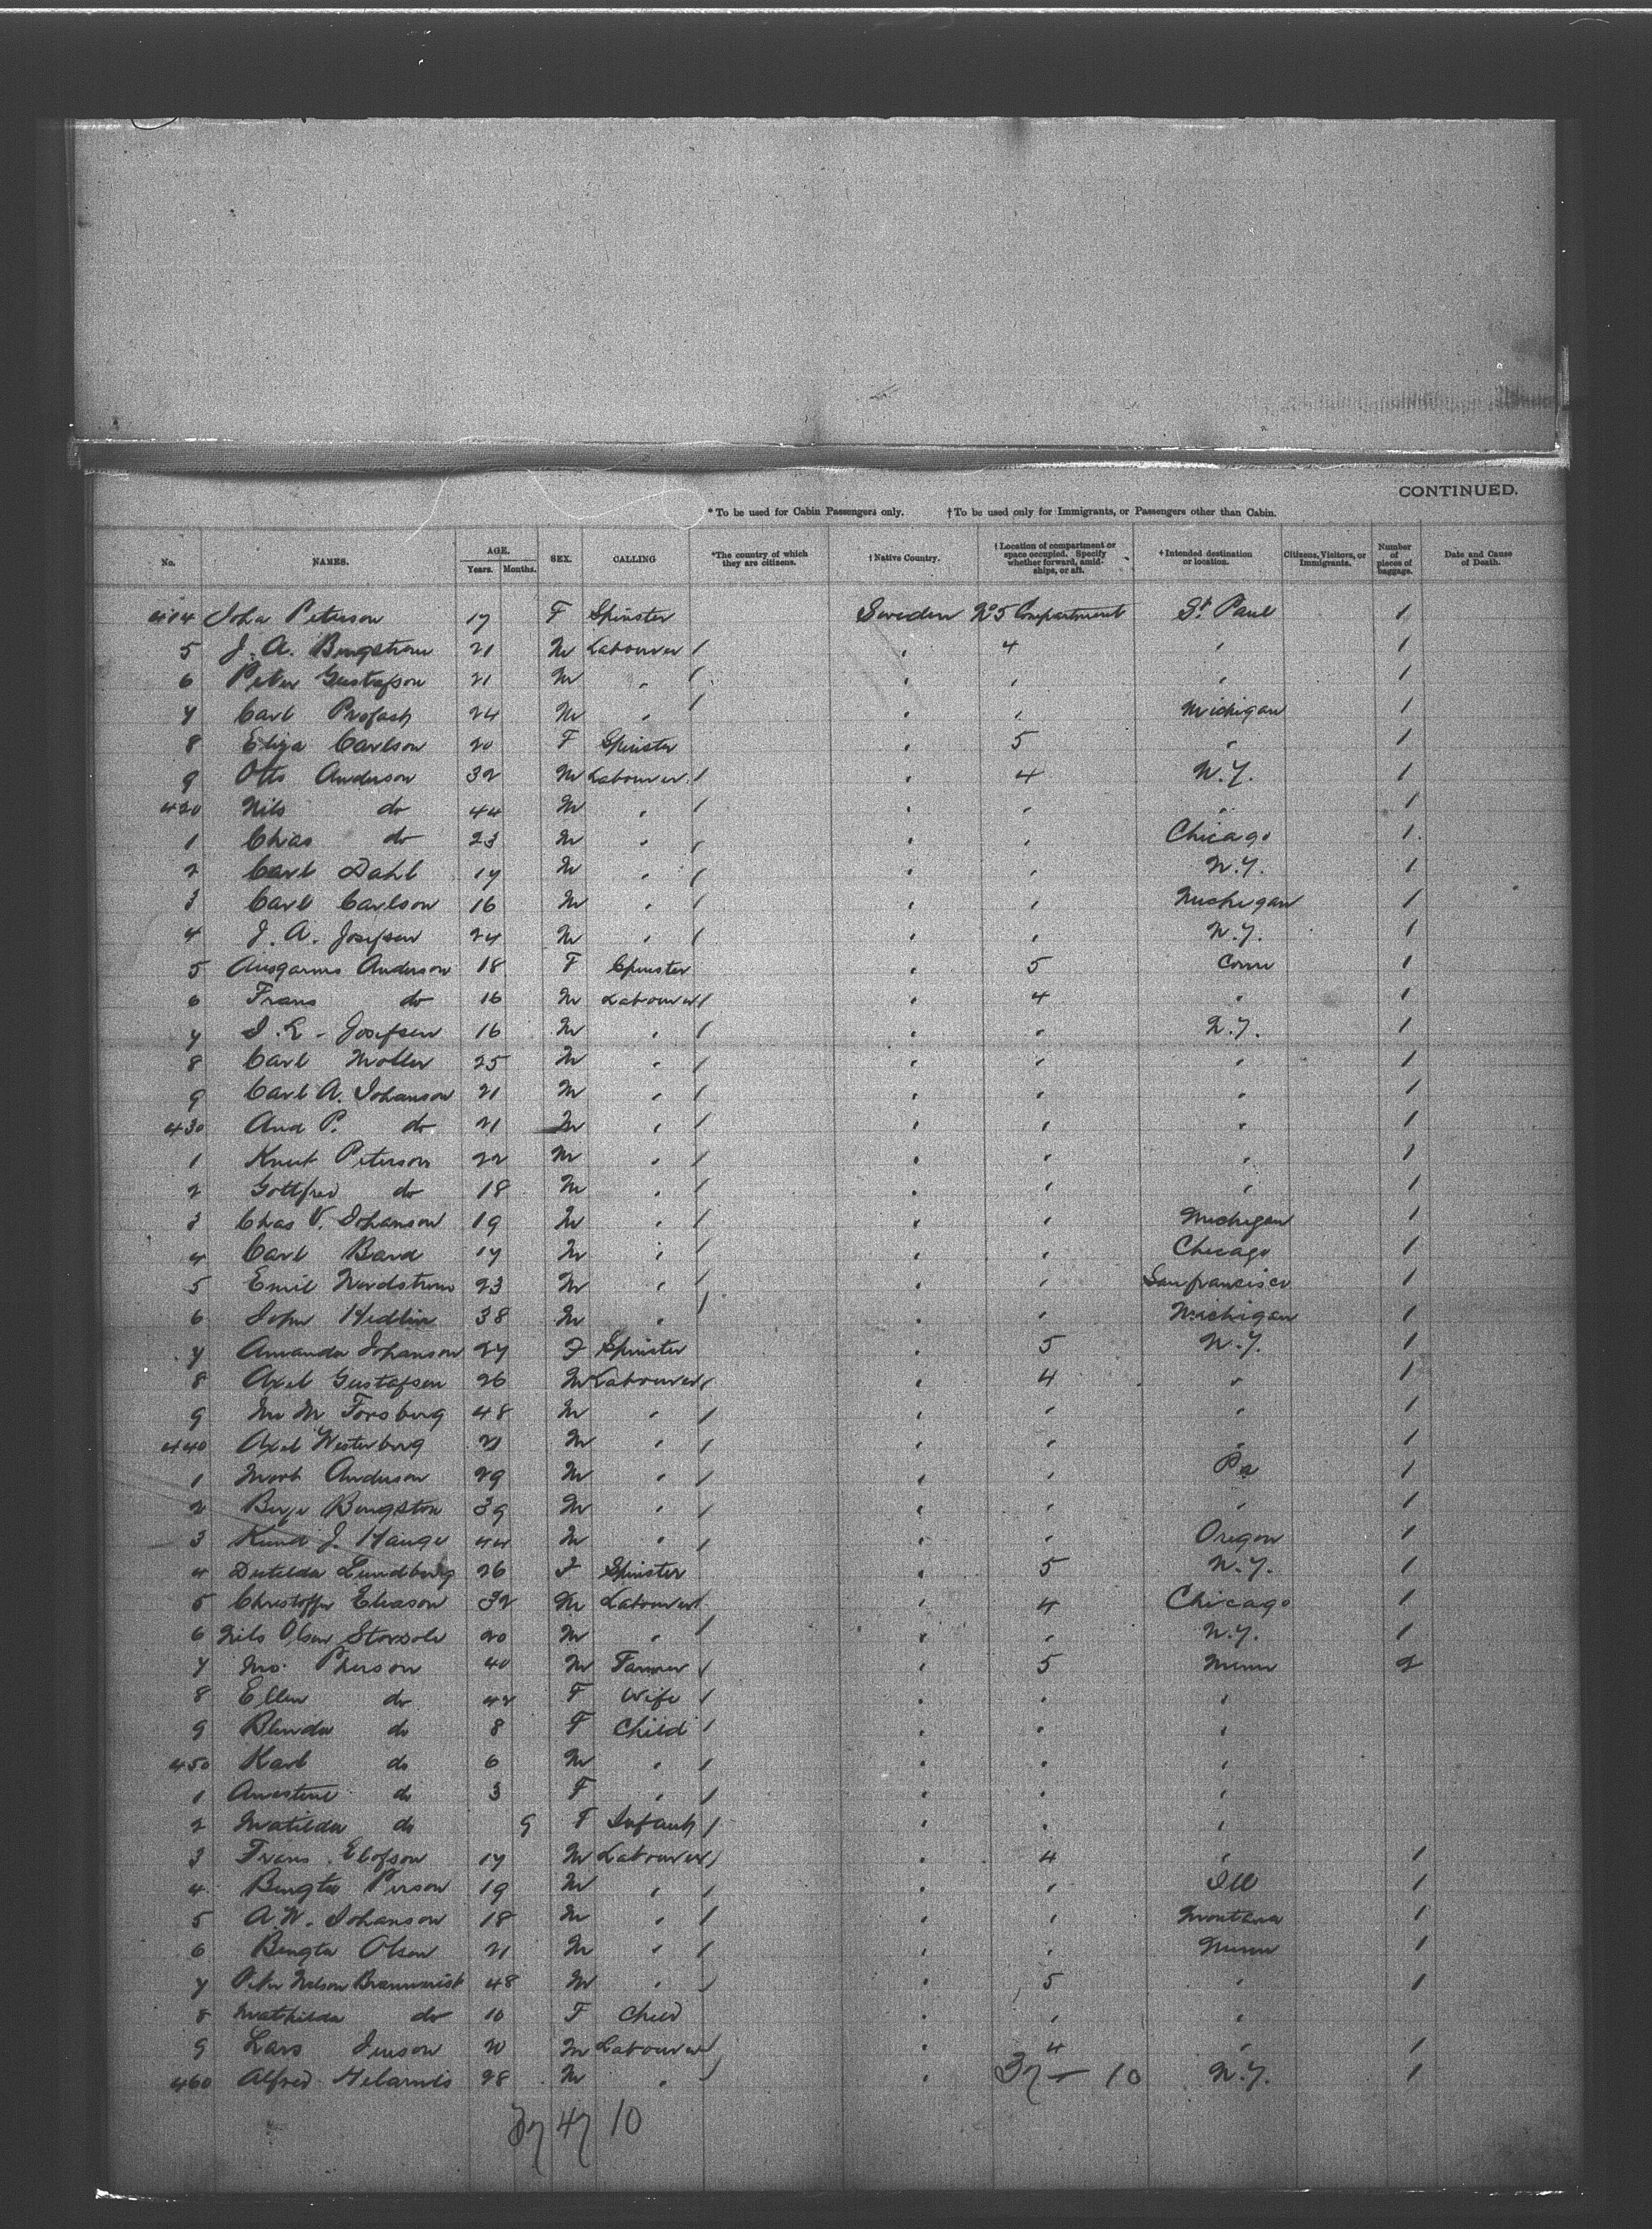 CONTINUED.
*To be used for Cabin Passengers only. †To be used only for Immigrants, or Passengers other than Cabin.
No. NAMES. AGE. Years. Months. SEX. CALLING *The country of which they are citizens. †Native Country. †Location of compartment or space occupied. Specify whether forward, amidships, or aft. †Intended destination or location. Citizens, Visitors, or Immigrants. Number of pieces of baggage. Date and Cause of Death.
414 Peterson 17 F Spinster Sweden No 5 Compartment St. Paul 1
5 J. A. Bengstrom 21 M Labourer / " 4 " 1
6 Peter Gustafson 21 M " / " " " 1
7 Carl 24 M " / " " Michigan 1
8 Eliza Carlson 20 F Spinster " 5 " 1
9 Otto Anderson 32 M Labourer / " 4 N.Y. 1
420 Nils do 44 M " / " " " 1
1 Chas do 23 M " / " " Chicago 1
2 Carl Dahl 17 M " / " " N.Y. 1
3 Carl Carlson 16 M " / " " Michigan 1
4 J. A. Josefsen 24 M " / " " N.Y. 1
5 Anderson 18 F Spinster " 5 Conn 1
6 Frans do 16 M Labourer / " 4 " 1
7 Josefsen 16 M " / " " N.Y. 1
8 Carl Moller 25 M " / " " " 1
9 Carl A. Johanson 21 M " / " " " 1
430 And P. do 21 M " / " " " 1
1 Knut Peterson 22 M " / " " " 1
2 Gottfrid do 18 M " / " " " 1
3 Chas V. Johanson 19 M " / " " Michigan 1
4 Carl Band 17 M " / " " Chicago 1
5 Emil Nordstrom 23 M " / " " Sanfrancisco 1
6 John Hedlin 38 M " / " " Michigan 1
7 Amanda Johanson 27 F Spinster " 5 N.Y. 1
8 Axel Gustafsen 26 M Labourer / " 4 " 1
9 Forsberg 48 M " / " " " 1
440 Axel Westerberg 21 M " / " " " 1
1 Anderson 29 M " / " " Pa 1
2 Bengston 39 M " / " " " 1
3 J. Hauge 44 M " / " " Oregon 1
4 Lundberg 26 F Spinster " 5 N.Y. 1
5 Christoffer Eliason 32 M Labourer / " 4 Chicago 1
6 Nils Olsen 20 M " / " " N.Y. 1
7 Jno. Pherson 40 M Farmer / " 5 Minn 2
8 Ellen do 42 F Wife / " " "
9 Blenda do 8 F Child / " " "
450 Karl do 6 M " / " " "
1 do 3 F " / " " "
2 Matilda do 9 F Infant / " " "
3 Frans Elofson 17 M Labourer / " 4 " 1
4 Bengta Person 19 M " / " " Ill 1
5 A. W. Johanson 18 M " / " " Montana 1
6 Bengta Olsen 21 M " / " " Minn 1
7 Peter Nelson 48 M " / " 5 " 1
8 Mathilda do 10 F Child " " "
9 Lars 20 M Labourer / " 4 " 1
460 Alfred 28 M " / " N.Y. 1
37 – 10
37 47 10